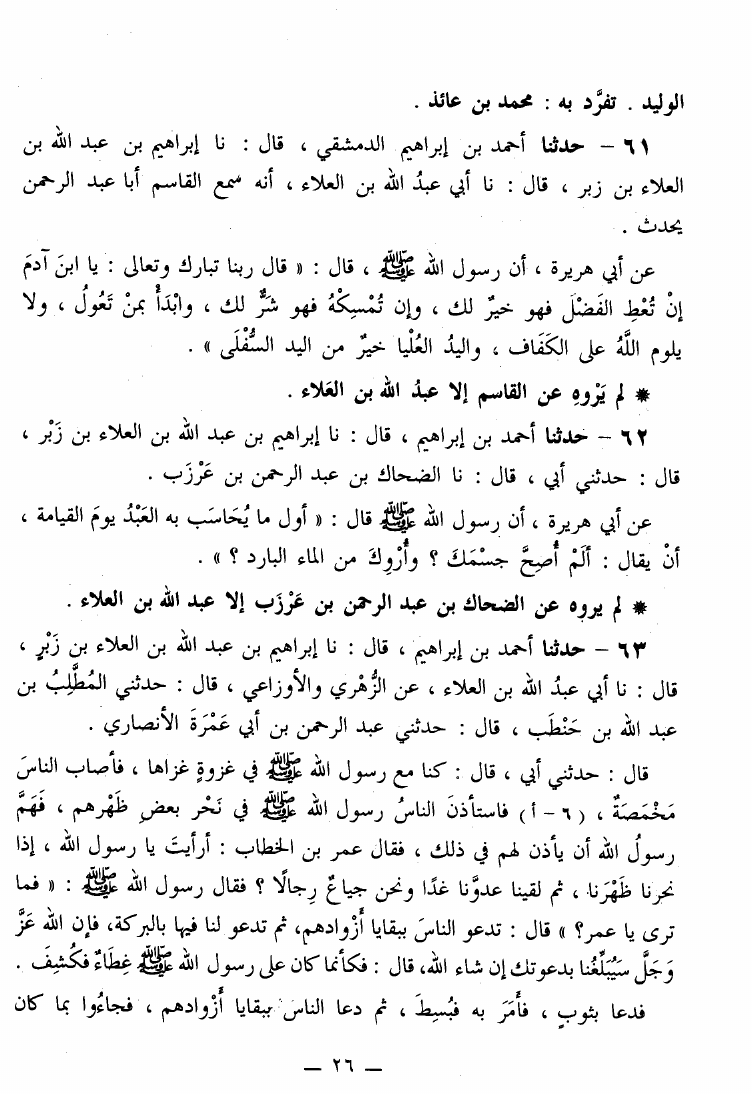 الوليد . تفرَّد به : محمد بن عائذ .
٦١ – حدثنا أحمد بن إبراهيم الدمشقي ، قال : نا إبراهيم بن عبد الله بن
العلاء بن زبر ، قال : نا أبي عبدُ الله بن العلاء ، أنه سمع القاسم أبا عبد الرحمن
يحدث .
عن أبي هريرة ، أن رسول الله ﷺ ، قال : « قال ربنا تبارك وتعالى : يا ابنَ آدمَ
إنْ تُعْطِ الفَضْلَ فهو خيرٌ لك ، وإن تُمْسِكْهُ فهو شرٌّ لك ، وابْدَأْ بمنْ تَعُولُ ، ولا
يلوم اللَّهُ على الكَفَاف ، واليدُ العُلْيا خيرٌ من اليد السُّفْلَى » .
* لم يَرْوِهِ عن القاسم إلا عبدُ الله بن العَلاء .
٦٢ – حدثنا أحمد بن إبراهيم ، قال : نا إبراهيم بن عبد الله بن العلاء بن زَبْر ،
قال : حدثني أبي ، قال : نا الضحاك بن عبد الرحمن بن عَرْزَب .
عن أبي هريرة ، أن رسول الله ﷺ قال : « أول ما يُحَاسَب به العَبْدُ يومَ القيامة ،
أنْ يقال : ألَمْ أُصِحَّ جسْمَكَ ؟ وأُرْوِكَ من الماء البارد ؟ » .
* لم يروه عن الضحاك بن عبد الرحمن بن عَرْزَب إلا عبد الله بن العلاء .
٦٣ – حدثنا أحمد بن إبراهيم ، قال : نا إبراهيم بن عبد الله بن العلاء بن زَبْرٍ ،
قال : نا أبي عبدُ الله بن العلاء ، عن الزُّهْري والأوزاعي ، قال : حدثني المُطَّلِبُ بن
عبد الله بن حَنْطَب ، قال : حدثني عبد الرحمن بن أبي عَمْرَةَ الأنصاري .
قال : حدثني أبي ، قال : كنا مع رسول الله ﷺ في غزوةٍ غزاها ، فأصاب الناسَ
مَخْمَصَةٌ ، (٦ - أ) فاستأذنَ الناسُ رسول الله ﷺ في نَحْر بعضِ ظَهْرهم ، فَهَمَّ
رسولُ الله أن يأذن لهم في ذلك ، فقال عمر بن الخطاب : أرأيتَ يا رسول الله ، إذا
نحرنا ظَهْرَنا ، ثم لقينا عدوَّنا غدًا ونحن جياعٌ رِجالًا ؟ فقال رسول الله ﷺ : « فما
ترى يا عمر؟ » قال : تدعو الناسَ ببقايا أزْوادهم، ثم تدعو لنا فيها بالبركة، فإن الله عَزَّ
وَجَلَّ سَيُبَلِّغُنا بدعوتك إن شاء الله، قال : فكأنما كان على رسول الله ﷺ غِطَاءٌ فكُشِفَ .
فدعا بثوبٍ ، فأَمَرَ به فبُسِطَ ، ثم دعا الناس ببقايا أزْوادهم ، فجاءُوا بما كان
— ٢٦ —